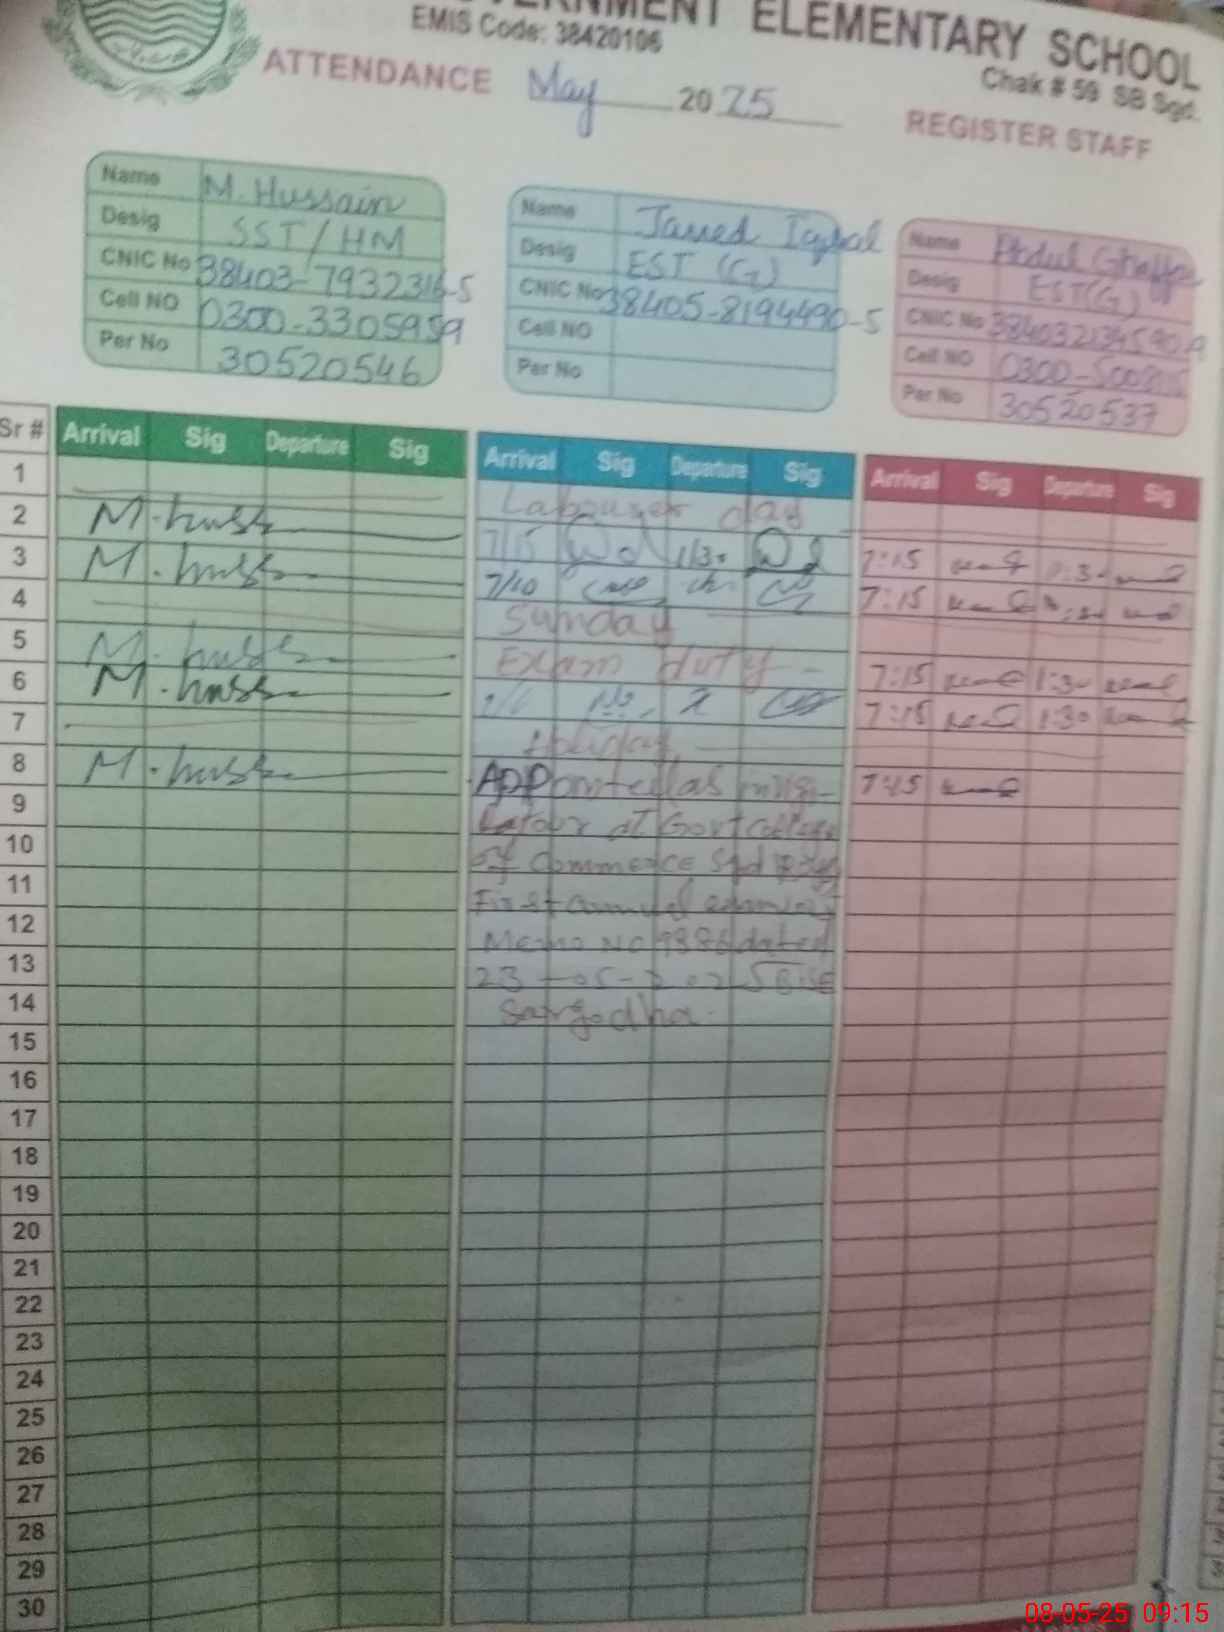 ELEMENTARY SCHOOL
EMIS Code: 38420106
Chak # 59 SB Sgd.
ATTENDANCE May 2025
REGISTER STAFF
Name M. Hussain
Desig SST/HM
CNIC No 38403-7932316-5
Cell NO 0300-3305959
Per No 30520546
Name Javed Iqbal
Desig EST (G)
CNIC No 38405-8194490-5
Cell NO
Per No
Name Abdul Ghaffar
Desig EST(G)
CNIC No
Cell NO
Per No 30520537
Sr # Arrival Sig Departure Sig Arrival Sig Departure Sig Arrival Sig Departure Sig
1 Labourer day
2 M. huss 7/15 1/30 7:15
3 M. huss 7/10 7:15
4 Sunday
5 M. huss Exam duty 7:15 1:30
6 M. huss 7:15 1:30
7 Holiday
8 M. huss Appointed as 7:15
9 at Govt College
10 of Commerce Sgd
11 First annual
12 Memo No 9386 dated
13 BISE
14 Sargodha.
15
16
17
18
19
20
21
22
23
24
25
26
27
28
29
30
08-05-25 09:15